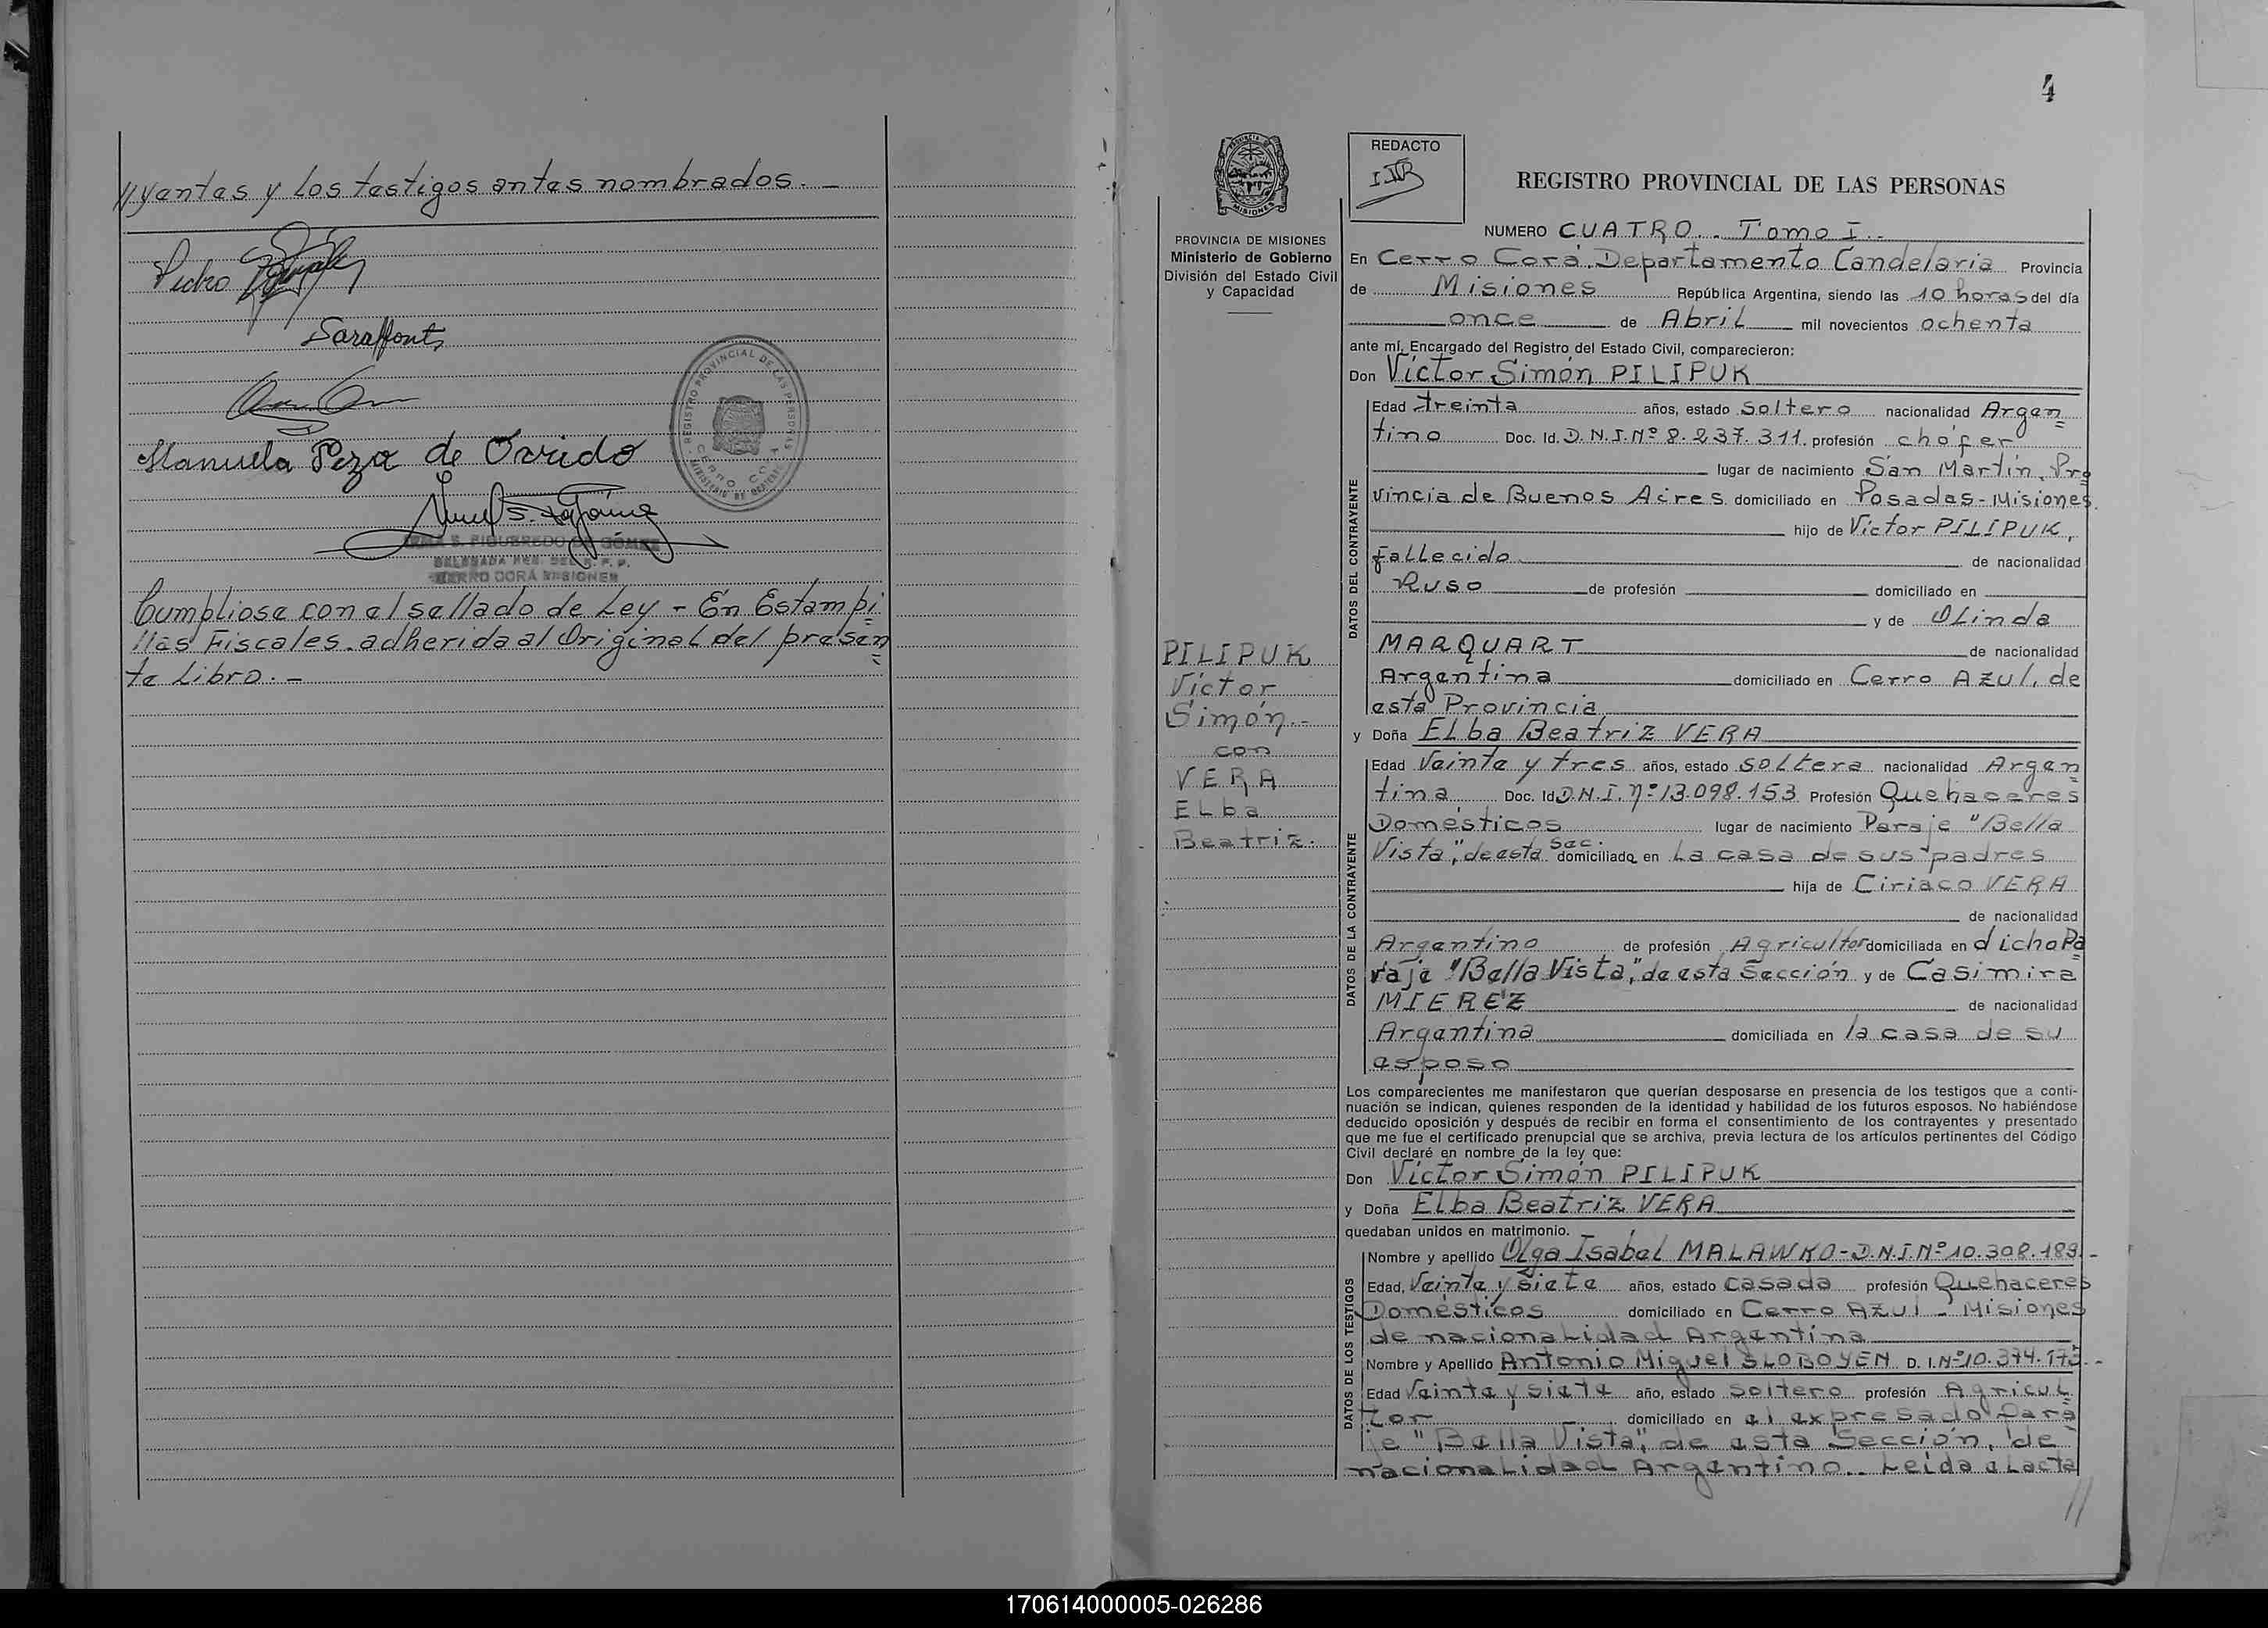 //yentes y los testigos antes nombrados. -
Pedro
Manuela Peza de Ovrido
REGISTRO PROVINCIAL DE LAS PERSONAS
CERRO CORA
IRMA S. FIGUEREDO DE GÓMEZ
CERRO CORÁ MISIONES
Cumpliose con el sellado de Ley - En Estampi
llas Fiscales adherida al Original del presen
te Libro. -
4
PROVINCIA DE MISIONES
Ministerio de Gobierno
División del Estado Civil
y Capacidad
PILIPUK
Víctor
Simón.-
con
VERA
Elba
Beatriz.
REDACTO
REGISTRO PROVINCIAL DE LAS PERSONAS
NUMERO CUATRO.. Tomo I.-
En Cerro Corá, Departamento Candelaria Provincia
de Misiones República Argentina, siendo las 10 horas del día
once de Abril mil novecientos ochenta
ante mí, Encargado del Registro del Estado Civil, comparecieron:
Don Víctor Simón PILIPUK
Edad treinta años, estado soltero nacionalidad Argen
tino Doc. Id. D.N.I.Nº 8.237.311. profesión chófer
lugar de nacimiento San Martín, Pro
vincia de Buenos Aires. domiciliado en Posadas-Misiones
hijo de Víctor PILIPUK,
fallecido de nacionalidad
Ruso de profesión domiciliado en
y de Olinda
MARQUART de nacionalidad
Argentina domiciliado en Cerro Azul, de
esta Provincia
y Doña Elba Beatriz VERA
Edad Veinte y tres años, estado soltera nacionalidad Argen
tina Doc. Id D.N.I. Nº 13.098.153 Profesión Quehaceres
Domésticos lugar de nacimiento Paraje "Bella
Vista," de esta Sec. domiciliada en La casa de sus padres
hija de Ciriaco VERA
de nacionalidad
Argentino de profesión Agricultor domiciliada en dicho Pa
raje "Bella Vista," de esta Sección y de Casimira
MIEREZ de nacionalidad
Argentina domiciliada en la casa de su
esposo
Los comparecientes me manifestaron que querían desposarse en presencia de los testigos que a conti-
nuación se indican, quienes responden de la identidad y habilidad de los futuros esposos. No habiéndose
deducido oposición y después de recibir en forma el consentimiento de los contrayentes y presentado
que me fue el certificado prenupcial que se archiva, previa lectura de los artículos pertinentes del Código
Civil declaré en nombre de la ley que:
Don Víctor Simón PILIPUK
y Doña Elba Beatriz VERA
quedaban unidos en matrimonio.
Nombre y apellido Olga Isabel MALAWKO-D.N.I.Nº 10.308.189.-
Edad, Veinte y Siete años, estado casada profesión Quehaceres
Domésticos domiciliado en Cerro Azul - Misiones
de nacionalidad Argentina
Nombre y Apellido Antonio Miguel SLOBOYEN D.I.Nº 10.374.173.-
Edad Veinte y siete año, estado soltero profesión Agricul
tor domiciliado en el expresado Para
je "Bella Vista", de esta Sección, de
nacionalidad Argentino.. Leída el acta
//
DATOS DEL CONTRAYENTE
DATOS DE LA CONTRAYENTE
DATOS DE LOS TESTIGOS
170614000005-026286